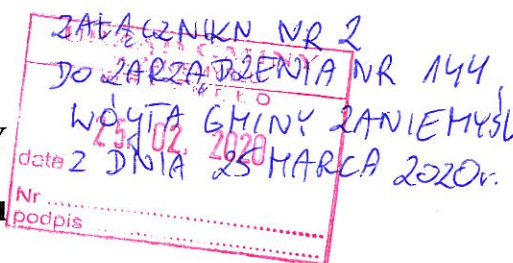 ZAŁĄCZNIKN NR 2
DO ZARZĄDZENIA NR 144
WÓJTA GMINY ZANIEMYŚL
Z DNIA 25 MARCA 2020r.
25. 02. 2020
data
Nr
podpis